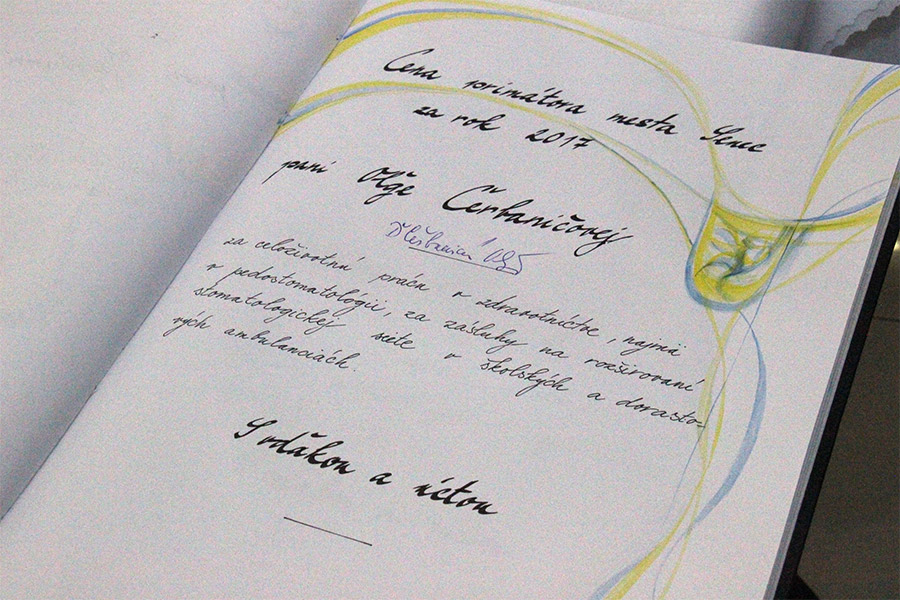 Cena primátora mesta Senec
za rok 2017
pani Oľge Čerhaničovej
za celoživotnú prácu v zdravotníctve, najmä
v pedostomatológii, za zásluhy na rozširovaní
stomatologickej siete v školských a dorasto-
vých ambulanciách.
S vďakou a úctou